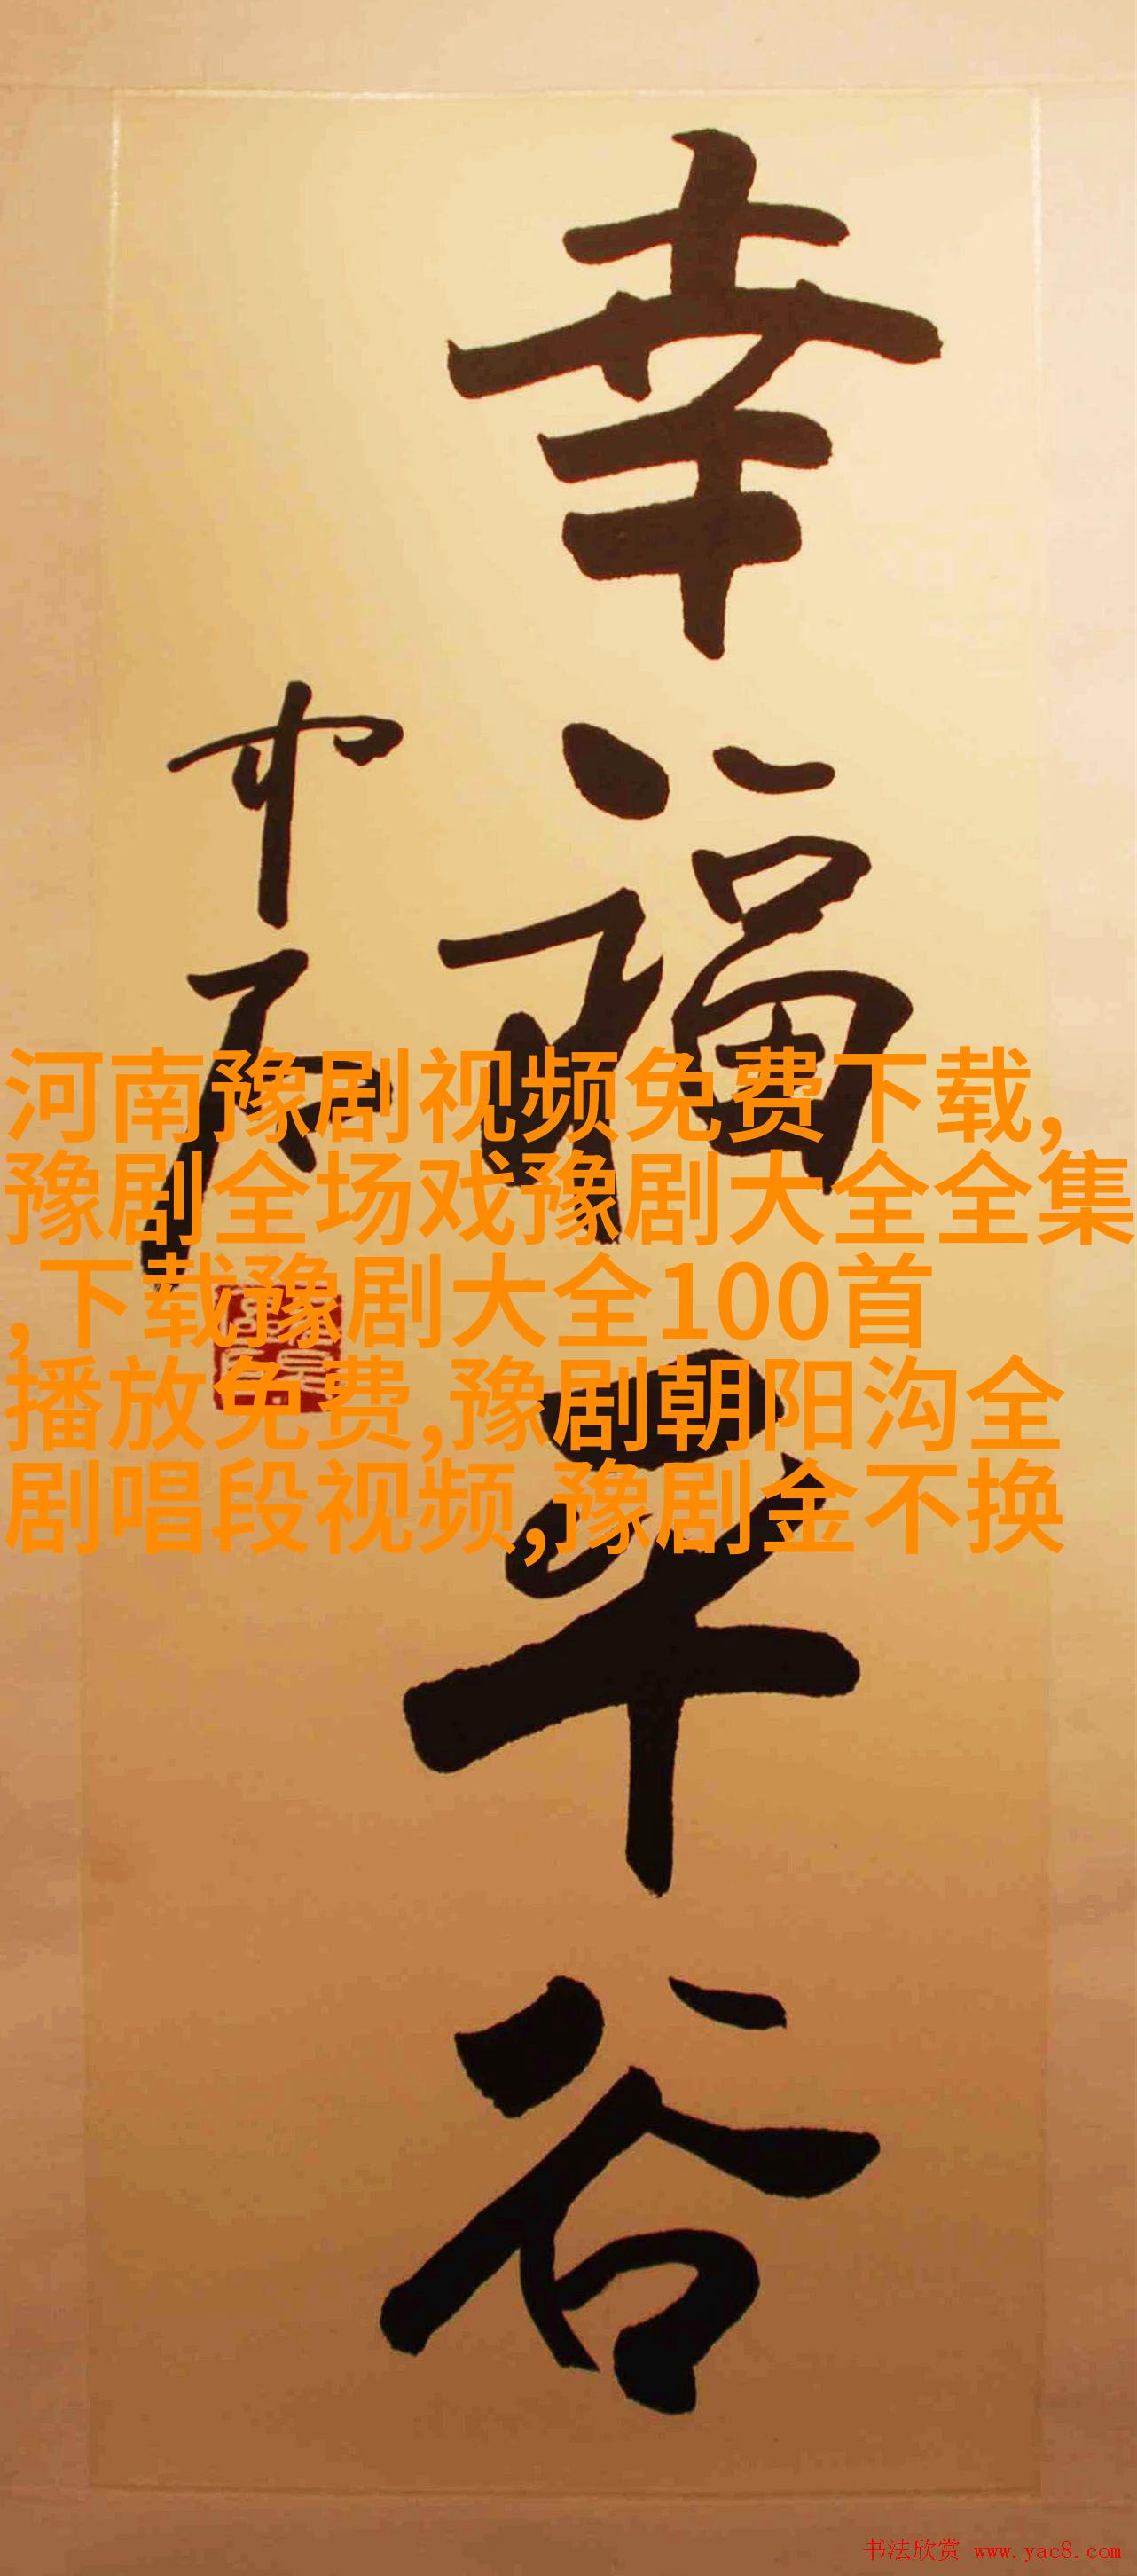 幸福平谷
中石
河南豫剧视频免费下载,
豫剧全场戏豫剧大全全集
,下载豫剧大全100首
播放免费,豫剧朝阳沟全
剧唱段视频,豫剧金不换
书法欣赏 www.yac8.com